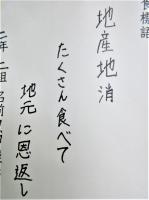 食標語
地産地消
たくさん食べて
地元に恩返し
二年二組